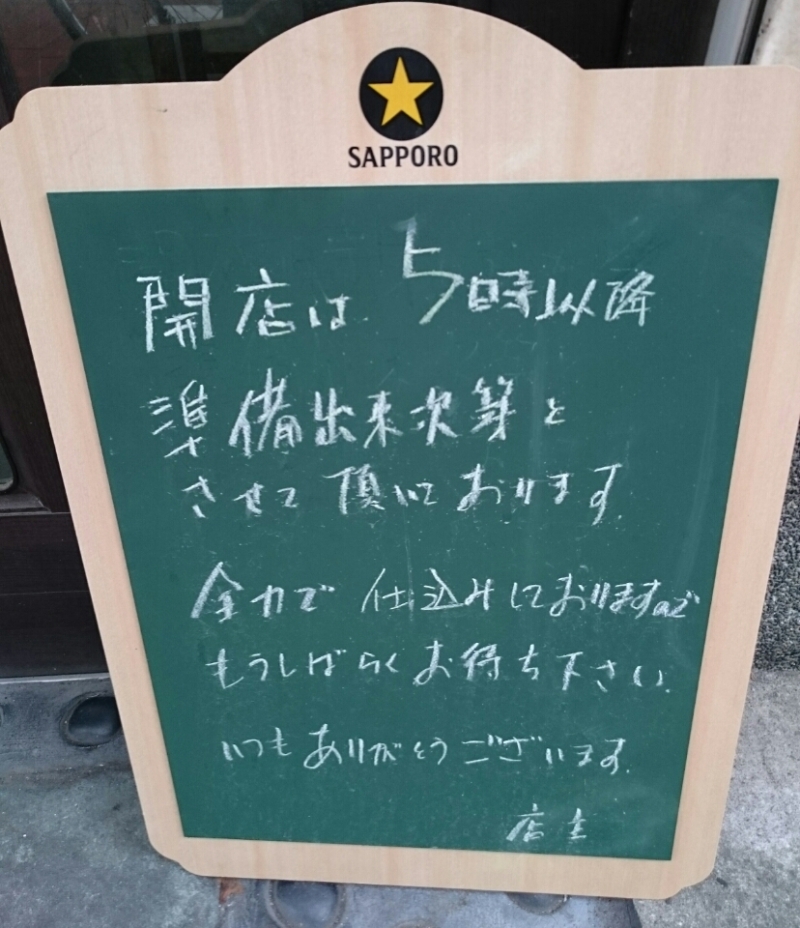 SAPPORO
開店は 5時以降
準備出来次第と
させて頂いております
全力で仕込みしておりますので
もうしばらくお待ち下さい。
いつもありがとうございます。
店主